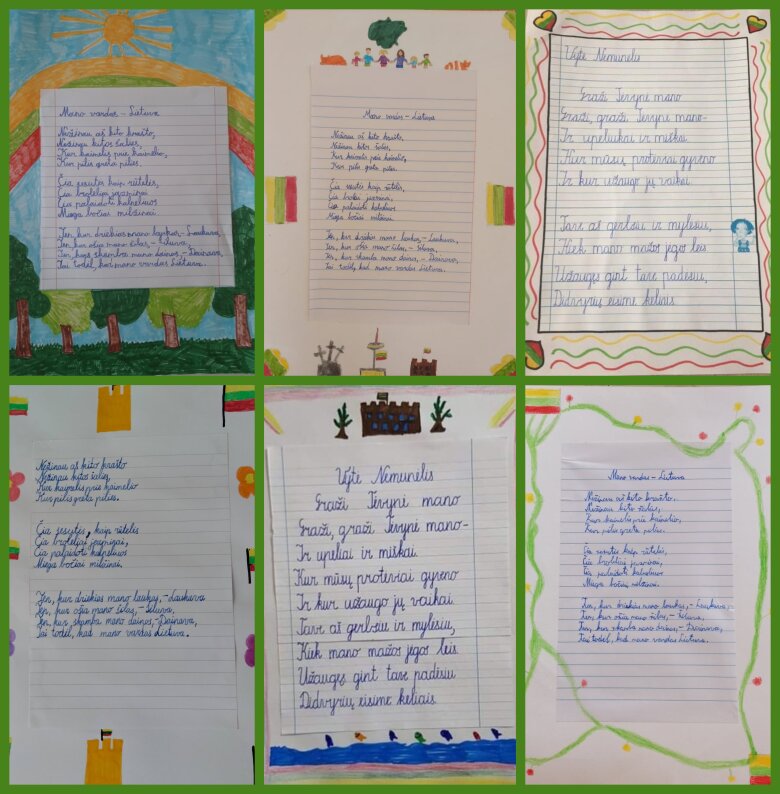 Mano vardas - Lietuva
Nežinau aš kito krašto,
Nežinau kitos šalies,
Kur kaimelis prie kaimelio,
Kur pilis greta pilies.
Čia sesutės kaip rūtelės,
Čia broleliai jazminai
Čia palaidoti kalneliuos
Miega bočiai milžinai.
Ten, kur driekias mano laukas, - Laukuva,
Ten, kur ošia mano šilas, - Šiluva,
Ten, kur skamba mano dainos, - Dainava,
Tai todėl, kad mano vardas Lietuva.
Mano vardas - Lietuva
Nežinau aš kito krašto,
Nežinau kitos šalies,
Kur kaimelis prie kaimelio,
Kur pilis greta pilies.
Čia sesutės kaip rūtelės,
Čia broliai jazminai,
Čia palaidoti kalneliuos
Miega bočiai milžinai.
Ten, kur driekias mano laukas, - Laukuva,
Ten, kur ošia mano šilas, - Šiluva,
Ten, kur skamba mano dainos, - Dainava,
Tai todėl, kad mano vardas Lietuva.
Vytė Nemunėlis
Graži Tėvynė mano
Graži, graži Tėvynė mano-
Ir upeliukai ir miškai.
Kur mūsų protėviai gyveno
Ir kur užaugo jų vaikai.
Tave aš gerbsiu ir mylėsiu,
Kiek mano mažos jėgos leis
Užaugęs gint tave padėsiu,
Didvyrių eisime keliais
Nežinau aš kito krašto
Nežinau kitos šalies,
Kur kaimelis prie kaimelio
Kur pilis greta pilies.
Čia sesutės, kaip rūtelės
Čia broleliai jazminai,
Čia palaidoti kalneliuos
Miega bočiai milžinai.
Ten, kur driekias mano laukas, - Laukuva
Ten, kur ošia mano šilas, - Šiluva,
Ten, kur skamba mano dainos, - Dainava,
Tai todėl, kad mano vardas Lietuva.
Vytė Nemunėlis
Graži Tėvynė mano
Graži, graži Tėvynė mano-
Ir upeliai ir miškai.
Kur mūsų protėviai gyveno
Ir kur užaugo jų vaikai.
Tave aš gerbsiu ir mylėsiu,
Kiek mano mažos jėgos leis.
Užaugęs gint tave padėsiu
Didvyrių eisime keliais.
Mano vardas - Lietuva
Nežinau aš kito krašto,
Nežinau kitos šalies,
Kur kaimelis prie kaimelio,
Kur pilis greta pilies.
Čia sesutės kaip rūtelės,
Čia broleliai jazminai,
Čia palaidoti kalneliuos
Miega bočiai milžinai.
Ten, kur driekias mano laukas, - Laukuva,
Ten, kur ošia mano šilas, - Šiluva,
Ten, kur skamba mano dainos, - Dainava,
Tai todėl, kad mano vardas Lietuva.